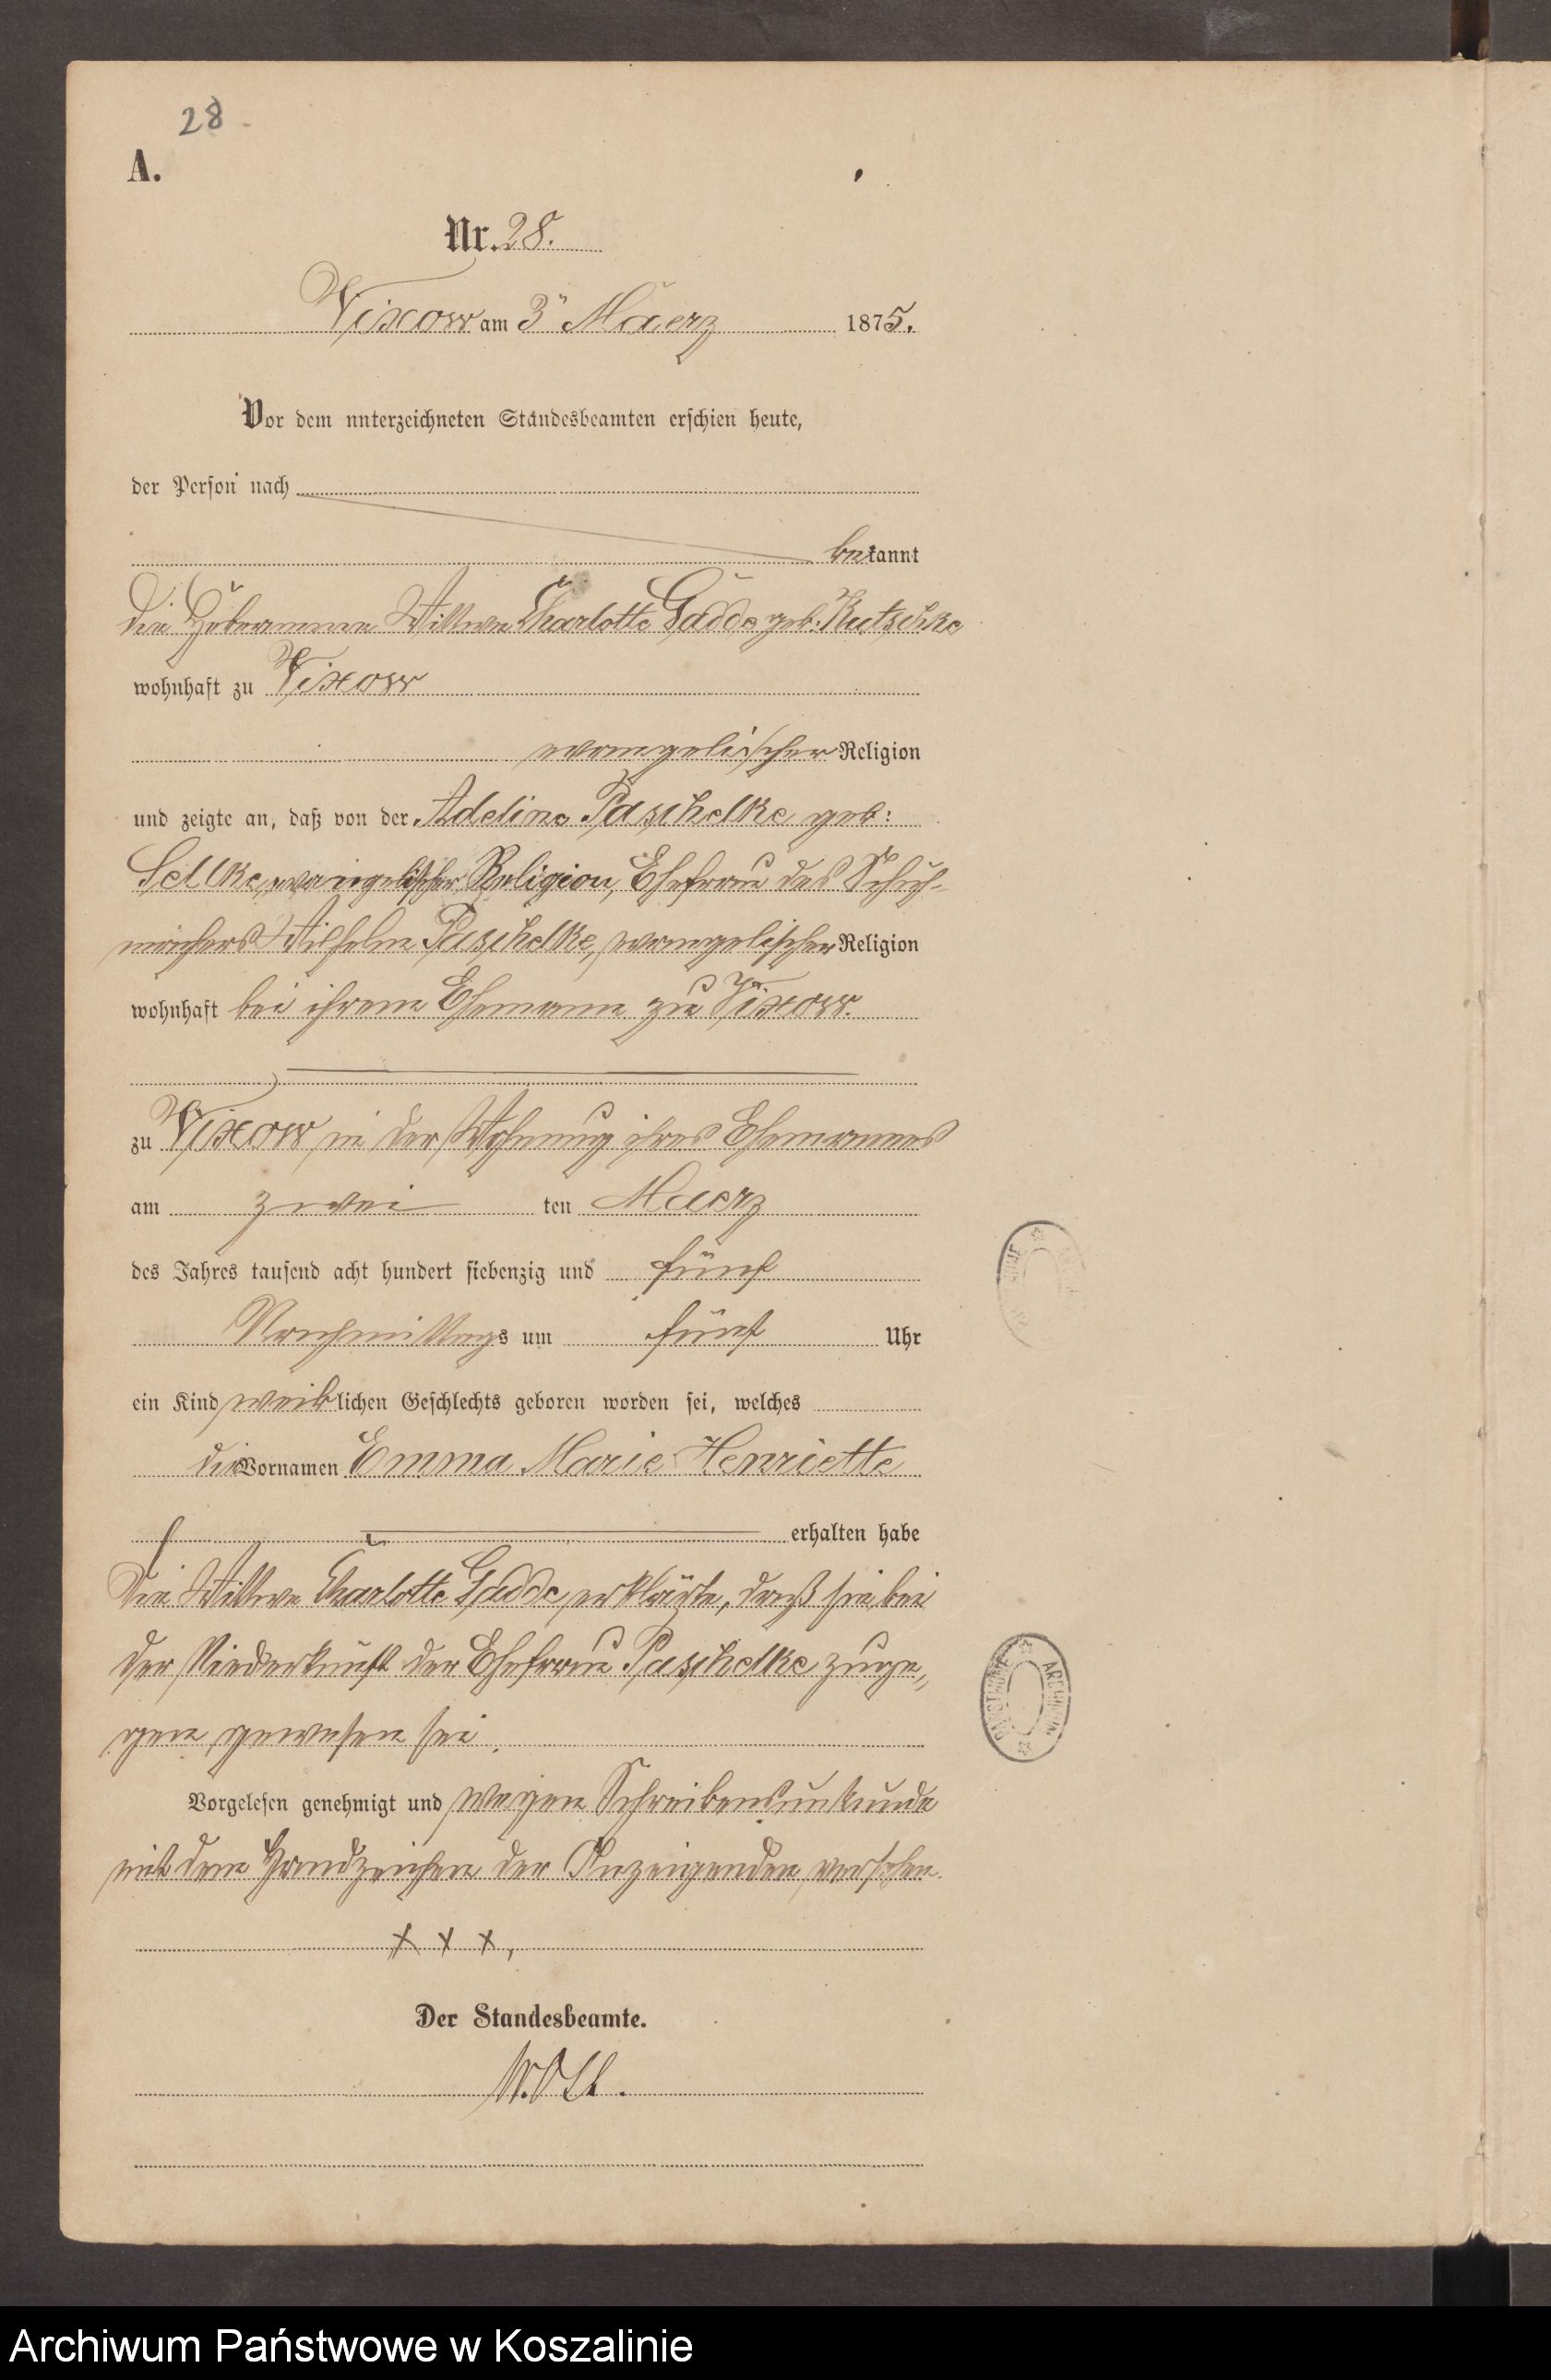 28
A.
Nr. 28.
Vixow am 3 Maerz 1875.
Vor dem unterzeichneten Standesbeamten erschien heute,
der Person nach
bekannt
die Hebeamme Wittwe Charlotte Gadde geb. Kutschke
wohnhaft zu Vixow
evangelischer Religion
und zeigte an, daß von der Adeline Paschelke geb:
Sellke, evangelischer Religion, Ehefrau des Schuh-
machers Wilhelm Paschelke, evangelischer Religion
wohnhaft bei ihrem Ehemann zu Vixow.
zu Vixow in der Wohnung ihres Ehemannes
am zwei ten Maerz
des Jahres tausend acht hundert siebenzig und fünf
Nachmittags um fünf Uhr
ein Kind weiblichen Geschlechts geboren worden sei, welches
die Vornamen Emma Marie Henriette
erhalten habe
Die Wittwe Charlotte Gadde erklärte, daß sie bei
der Niederkunft der Ehefrau Paschelke zuge„
gen gewesen sei.
Vorgelesen genehmigt und wegen Schreibensunkunde
mit dem Handzeichen der Anzeigenden versehen.
x x x,
Der Standesbeamte.
ARCHIWUM
Archiwum Państwowe w Koszalinie